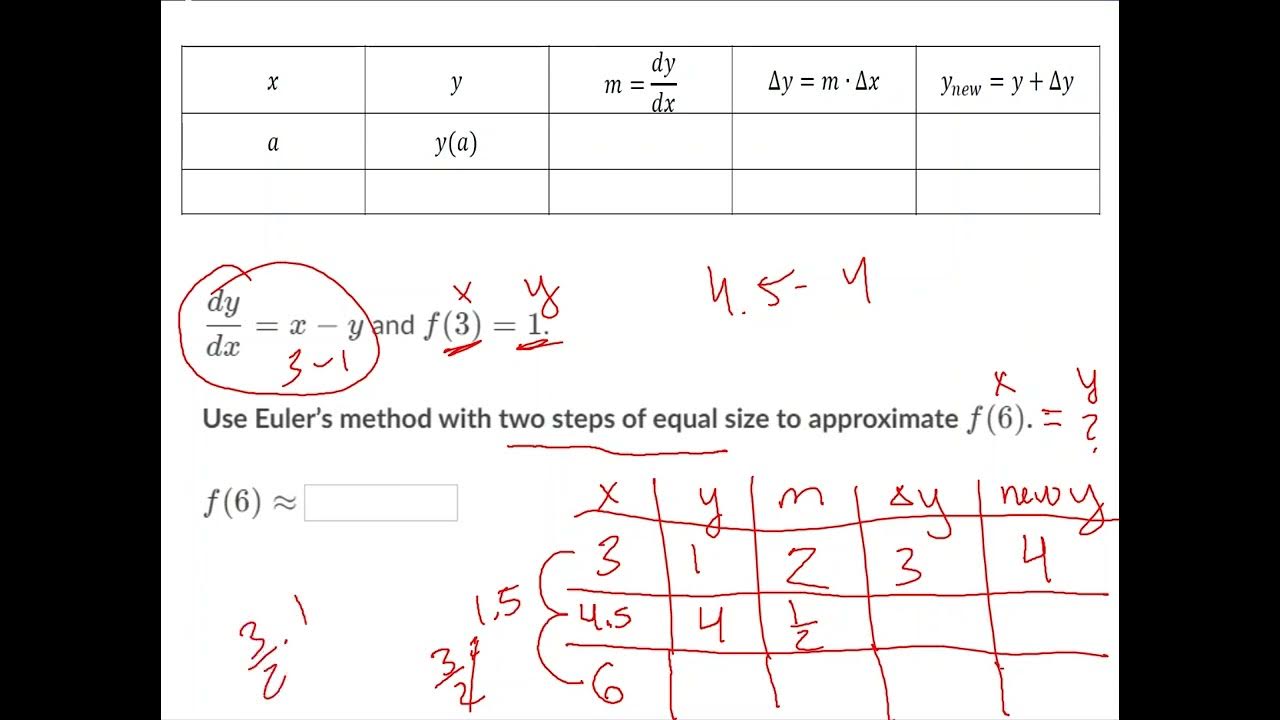 x y m = dy/dx Δy = m · Δx y_new = y + Δy
a y(a)
x y 4.5 - 4
dy/dx = x − y and f(3) = 1.
3 - 1
x y
Use Euler's method with two steps of equal size to approximate f(6). = ?
f(6) ≈
x y m Δy new y
3 1 2 3 4
1.5
4.5 4 1/2
3/2 · 1
3/2
6